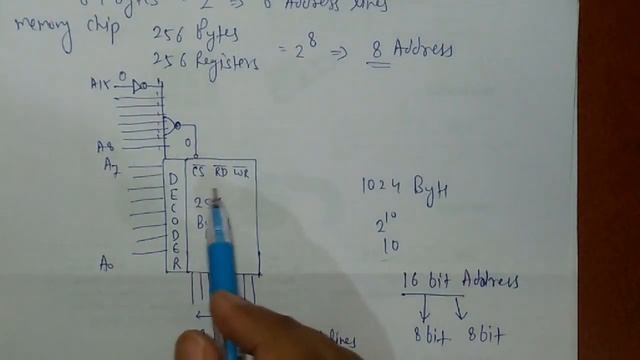 = 2 ⇒ 6 Address lines
memory chip 256 Bytes
256 Registers = 2^8 ⇒ 8 Address
A15 0
A8 0
A7
CS RD WR
DECODER
A0
1024 Byte
2^10
10
16 bit Address
8 bit 8 bit
lines